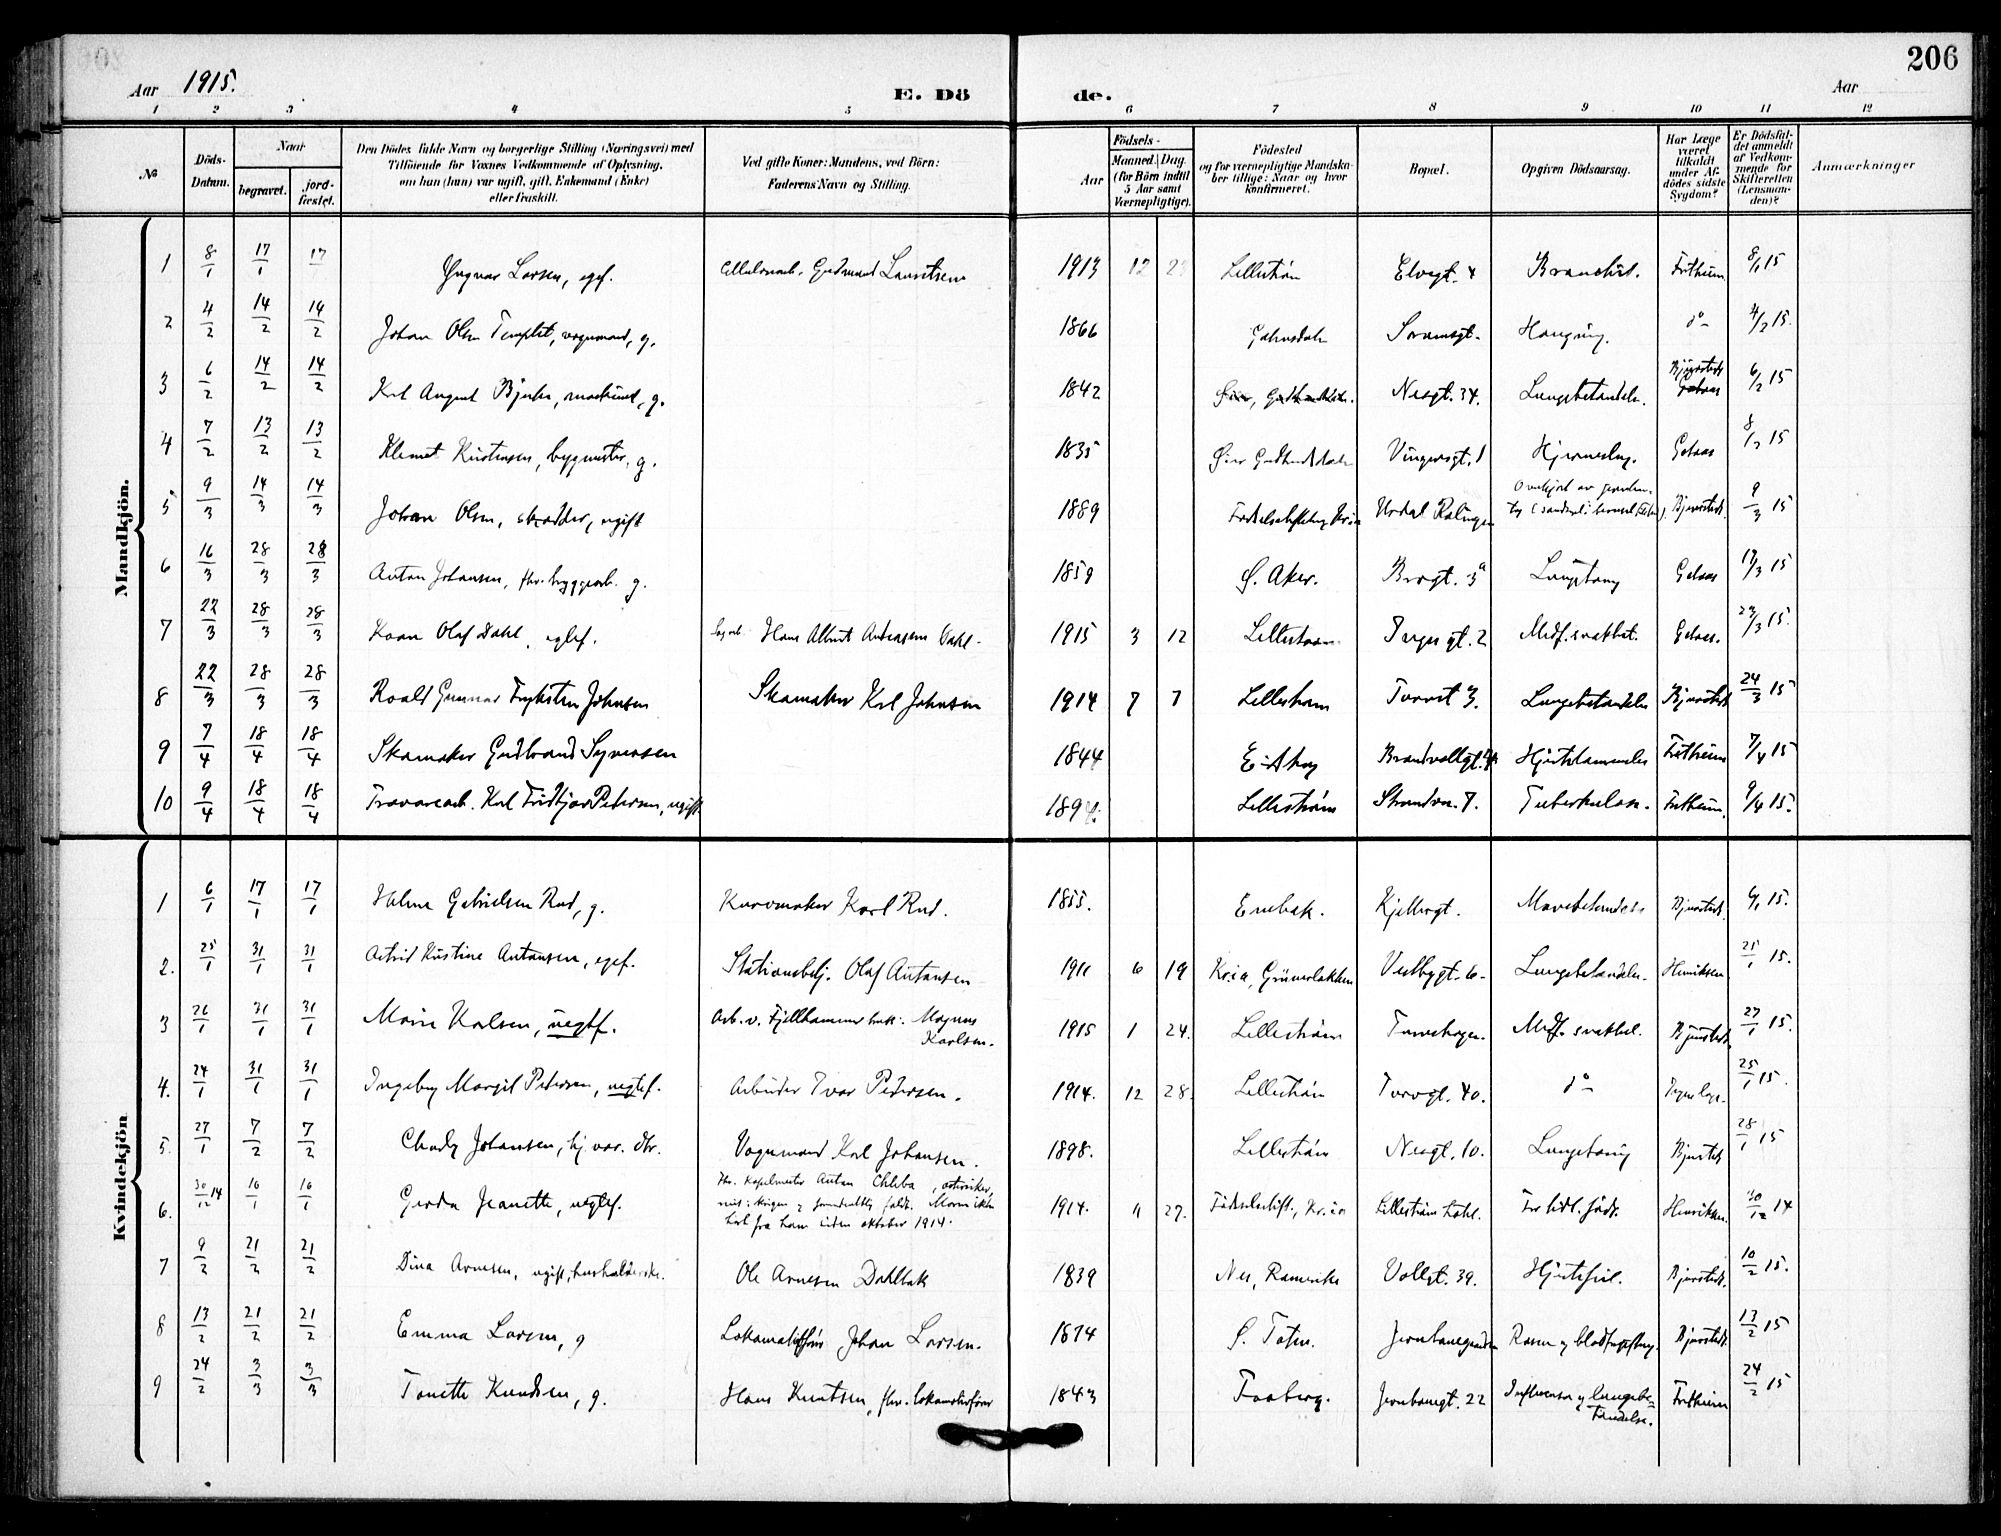 206
Aar 1915.
E. Dö de.
Aar
1 2 3 4 5 6 7 8 9 10 11 12
№
Döds-Datum.
Naar
begravet.
jord-fæstet.
Den Dödes fulde Navn og borgerlige Stilling (Næringsvei) med Tilföiende for Voxnes Vedkommende af Oplysning, om han (hun) var ugift, gift, Enkemand (Enke) eller fraskilt.
Ved gifte Koner: Mandens, ved Börn: Faderens Navn og Stilling.
Födsels-
Aar
Maaned. Dag. (for Börn indtil 5 Aar samt Værnepligtige).
Födested og for værnepligtige Mandskaber tillige: Naar og hvor konfirmeret.
Bopæl.
Opgiven Dödsaarsag.
Har Læge været tilkaldt under Afdödes sidste Sygdom?
Er Dödsfaldet anmeldt af Vedkommende for Skifteretten (Lensmanden)?
Anmærkninger
Mandkjön.
1 8/1 17/1 17 Yngvar Larsen, egef. Gudmund Lauritsen 1913 12 Lillestrøm Elvegt. 4 Fretheim 8/1 15
2 4/2 14/2 14/2 Johan Olsen vognmand, g. 1866 Hængning. do 4/2 15
3 6/2 14/2 14/2 Karl August g. 1842 Nesgt. 34. Lungebetændelse. Bjerstedt 6/2 15
4 7/2 13/2 13/2 Klemet Kristensen, bygmester, g. 1835 Øier Gudbrandsdalen Vingersgt. 1 Gotaas 8/2 15
5 9/3 14/3 14/3 Johan Olsen, skrædder, ugift 1889 Bjerstedt. 9/3 15
6 16/3 28/3 28/3 Anton Johansen, fhv. byggearb. g. 1859 Ø. Aker. Brogt. 3a Gotaas 17/3 15
7 22/3 28/3 28/3 Kaare Olaf Dahl, egtef. Hans Albert Andreasen Dahl 1915 3 12 Lillestrøm 2 Medf. svakhet. Gotaas. 23/3 15.
8 22/3 28/3 28/3 Roald Gunnar Johnsen Skomaker Karl Johnsen 1914 7 7 Lillestrøm Torvet 3. Lungebetændelse Bjerstedt 24/3 15
9 7/4 18/4 18/4 Skomaker Gudbrand Syversen 1844 Brandvoldgt. Fretheim 7/4 15
10 9/4 18/4 18/4 Karl Fridtjov Petersen, ugift Lillestrøm 7. Tuberkulose. Fretheim. 9/4 15.
Kvindekjön
1 6/1 17/1 17/1 Gabrielsen Rud, g. Kurvmaker Karl Rud. 1855. Enebak. Kjellergt. Bjerstedt. 6/1 15.
2. 25/1 31/1 31/1 Astrid Kristine Antonsen, egef. Stationsbetj. Olaf Antonsen 6 19 Kr.ia, Grünerløkken Vestbygt. 6. Lungebetændelse. Henriksen 25/1 15.
3 26/1 31/1 31/1 Marie Karlsen, uegtef. Arb. v. Fjellhammer bruk: Magnus Karlsen. 1915 1 24. Lillestrøm Medf. svakhet. Bjerstedt. 27/1 15.
4. 24/1 31/1 31/1 Ingeborg Margit Petersen, uegtef. Arbeider Ivar Petersen. 1914. 12 28. Lillestrøm Torvgt. 40. do 25/1 15.
5. 27/1 7/2 7/2 Johansen, hj. var. dtr. Vognmand Karl Johansen. 1898. Lillestrøm Nesgt. 10. Bjerstedt 28/1 15
6. 30/12 14 10/1 10/1 Gerda Jeanette, uegtef. Fhv. Kapelmester Anton Chleba, østeriker, med i krigen og formodentlig faldt. Moren ikke hørt fra ham siden oktober 1914. 1914. 11 27. Fødselsstift., Kr.ia Lillestrøm For tidl. født. Henriksen. 30/12 14
7 9/2 21/2 21/2 Dina Arnesen, ugift, husholderske. Ole Arnesen Dahlbak 1839 Nes, Romerike Voldgt. 39. Hjertefeil. Bjerstedt. 10/2 15.
8 13/2 21/2 21/2 Emma Larsen, g Lokomotivfører Johan Larsen. 1874 Ø. Toten. Jernbanegaarden Bjerstedt 13/2 15
9 24/2 3/3 3/3 Tonette Knudsen, g. Hans Knutsen, fhv. lokomotivfører 1843 Faaberg. Jernbanegt. 22 Influensa og lungebetændelse. Fretheim 24/2 15